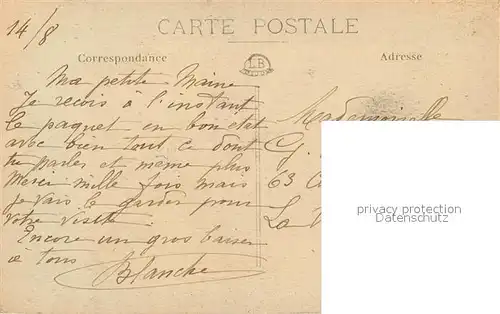 14/8
CARTE POSTALE
Correspondance
LB
Adresse
Ma petite Maine
Je recois à l'instant
le paquet en bon etat
avec bien tout ce dont
tu parles et même plus
Merci mille fois mais
je vais le garder pour
votre visite.
Encore un gros baiser
a tous
Blanche
Mademoiselle
G.
63
La
privacy protection
Datenschutz